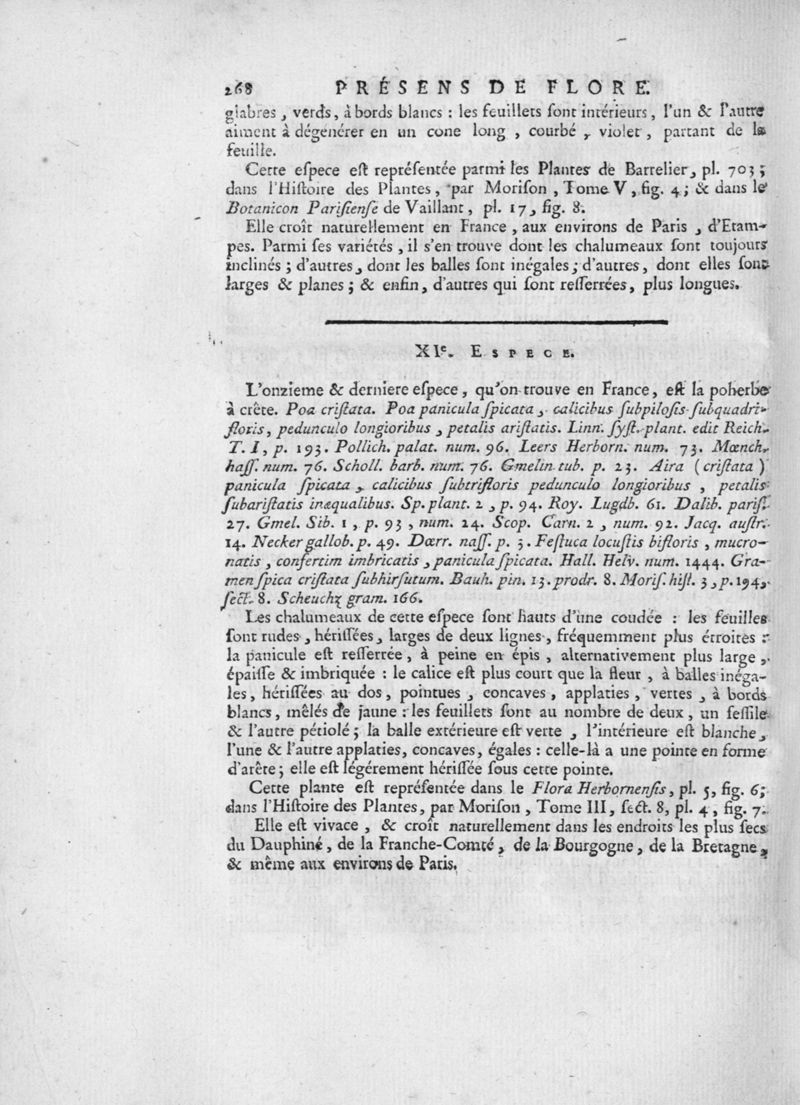 268 PRÉSENS DE FLORE.
glabres, verds, à bords blancs : les feuillets ſont intérieurs, l'un & l'autre
aiment à dégénérer en un cone long, courbé, violet, partant de la
feuille.
Cette eſpece eſt repréſentée parmi les Plantes de Barrelier, pl. 703 ;
dans l'Hiſtoire des Plantes, par Moriſon, Tome V, fig. 4 ; & dans le
Botanicon Pariſienſe de Vaillant, pl. 17, fig. 8.
Elle croît naturellement en France, aux environs de Paris, d'Etam-
pes. Parmi ſes variétés, il s'en trouve dont les chalumeaux ſont toujours
inclinés ; d'autres, dont les balles ſont inégales ; d'autres, dont elles ſont
larges & planes ; & enfin, d'autres qui ſont reſſerrées, plus longues.
XIe. ESPECE.
L'onzieme & derniere eſpece, qu'on trouve en France, eſt la poherbe
à crête. Poa criſtata. Poa panicula ſpicata, calicibus ſubpiloſis ſubquadri-
floris, pedunculo longioribus, petalis ariſtatis. Linn. ſyſt. plant. edit Reich.
T. I, p. 193. Pollich. palat. num. 96. Leers Herborn. num. 73. Mœnch,
haſſ. num. 76. Scholl. barb. num. 76. Gmelin tub. p. 23. Aira (criſtata)
panicula ſpicata, calicibus ſubtrifloris pedunculo longioribus, petalis
ſubariſtatis inæqualibus. Sp. plant. 2, p. 94. Roy. Lugdb. 61. Dalib. pariſ.
27. Gmel. Sib. 1, p. 93, num. 24. Scop. Carn. 2, num. 92. Jacq. auſtr.
14. Necker gallob. p. 49. Dœrr. naſſ. p. 3. Feſtuca locuſtis bifloris, mucro-
natis, confertim imbricatis, panicula ſpicata. Hall. Helv. num. 1444. Gra-
men ſpica criſtata ſubhirſutum. Bauh. pin. 13. prodr. 8. Moriſ. hiſt. 3, p. 194,
ſect. 8. Scheuchz gram. 166.
Les chalumeaux de cette eſpece ſont hauts d'une coudée : les feuilles
ſont rudes, hériſſées, larges de deux lignes, fréquemment plus étroites :
la panicule eſt reſſerrée, à peine en épis, alternativement plus large,
épaiſſe & imbriquée : le calice eſt plus court que la fleur, à balles inéga-
les, hériſſées au dos, pointues, concaves, applaties, vertes, à bords
blancs, mêlés de jaune : les feuillets ſont au nombre de deux, un ſeſſile
& l'autre pétiolé ; la balle extérieure eſt verte, l'intérieure eſt blanche,
l'une & l'autre applaties, concaves, égales : celle-là a une pointe en forme
d'arête ; elle eſt légérement hériſſée ſous cette pointe.
Cette plante eſt repréſentée dans le Flora Herbornenſis, pl. 5, fig. 6 ;
dans l'Hiſtoire des Plantes, par Moriſon, Tome III, ſect. 8, pl. 4, fig. 7.
Elle eſt vivace, & croît naturellement dans les endroits les plus ſecs
du Dauphiné, de la Franche-Comté, de la Bourgogne, de la Bretagne,
& même aux environs de Paris.